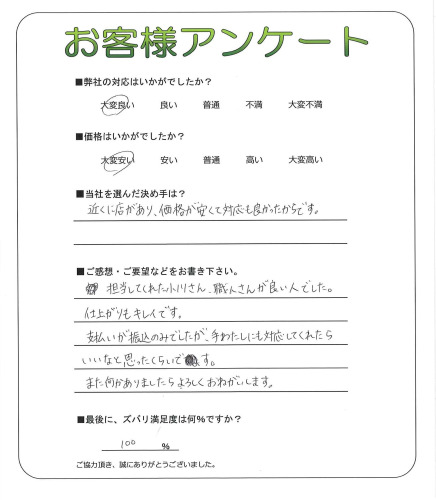 お客様アンケート
■弊社の対応はいかがでしたか？
大変良い 良い 普通 不満 大変不満
■価格はいかがでしたか？
大変安い 安い 普通 高い 大変高い
■当社を選んだ決め手は？
近くに店があり、価格が安くて対応も良かったからです。
■ご感想・ご要望などをお書き下さい。
担当してくれた小川さん、職人さんが良い人でした。
仕上がりもキレイです。
支払いが振込のみでしたが、手わたしにも対応してくれたら
いいなと思ったくらいです。
また何かありましたらよろしくおねがいします。
■最後に、ズバリ満足度は何%ですか？
100 %
ご協力頂き、誠にありがとうございました。